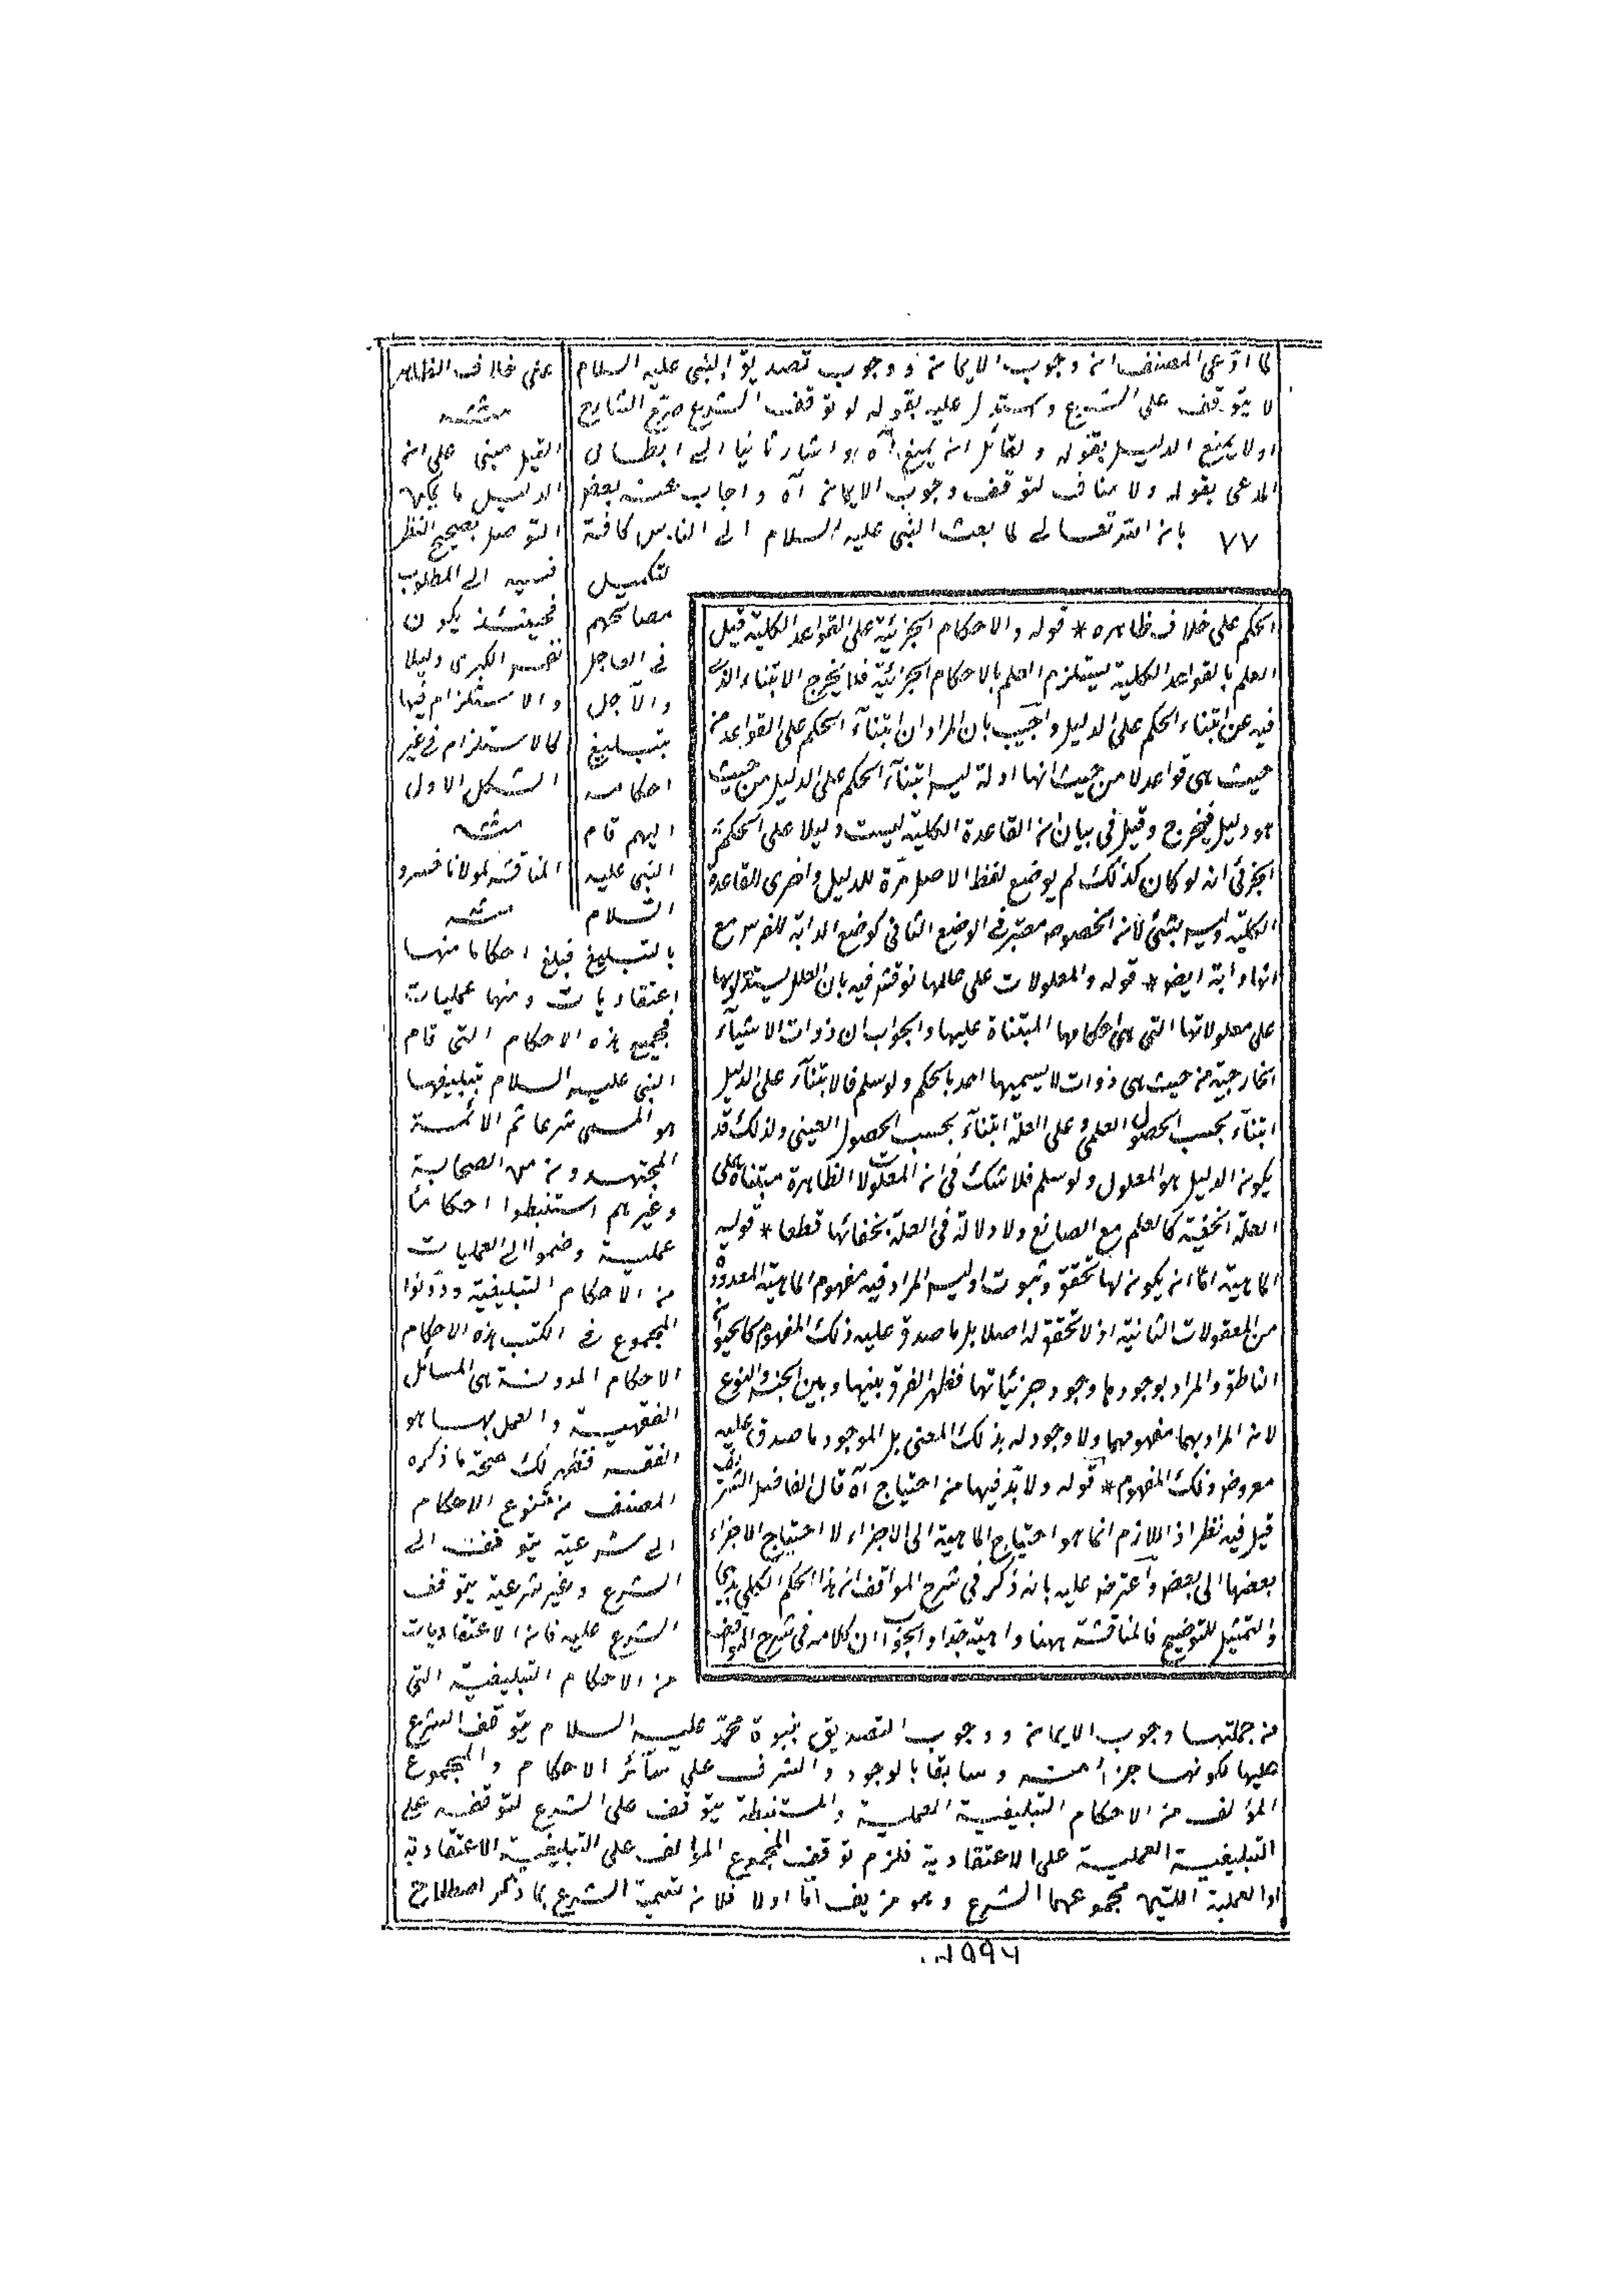 لما ادّعى المصنف ان وجوب الايمان و وجوب تصديق النبى عليه السلام
لا يتوقف على الشرع واستدل عليه بقوله لو توقف الشرع صرّح الشارح
اولا بمنع الدليل بقوله ولقائل ان يمنع آه واشار ثانيا الى ابطال
المدعى بقوله ولا مناف لتوقف وجوب الايمان آه واجاب عنه بعض
٧٧ بان الله تعالى لما بعث النبى عليه السلام الى الناس كافة
لتكميل
مصالحهم
فى العاجل
والآجل
بتبليغ
احكامه
اليهم قام
النبى عليه
السلام
بالتبليغ فبلغ احكاما منها
اعتقاديات ومنها عمليات
فجميع هذه الاحكام التى قام
النبى عليه السلام بتبليغها
هو المسمى شرعا ثم الائمة
المجتهدون من الصحابة
وغيرهم استنبطوا احكاما
عملية وضموا الى العمليات
من الاحكام التبليغية ودوّنوا
المجموع فى الكتب هذه الاحكام
الاحكام المدونة هى المسائل
الفقهية والعمل بها هو
الفقه فظهر لك صحة ما ذكره
المصنف من تنوع الاحكام
الى شرعية يتوقف الى
الشرع وغير شرعية يتوقف
الشرع عليه فان الاعتقاديات
من الاحكام التبليغية التى
من جملتها وجوب الايمان ووجوب التصديق بنبوة محمّد عليه السلام يتوقف الشرع
عليها لكونها جزأ منه وسابقا بالوجود والشرف على سائر الاحكام والمجموع
المؤلف من الاحكام التبليغية العملية والمستنبطة يتوقف على الشرع لتوقفه على
التبليغية العملية على الاعتقادية فلزم توقف المجموع المؤلف على التبليغية الاعتقادية
او العملية اللتين مجموعهما الشرع وهو مزيف امّا اولا فلان تسمية الشرع بما ذكر اصطلاح
على خلاف الظاهر
منه
القيل مبنى على انه
الدليل ما يمكن
التوصل بصحيح النظر
فيه الى المطلوب
فحينئذ يكون
نفس الكبرى دليلا
والاستلزام فيها
كالاستلزام فى غير
الشكل الاول
منه
المناقشة لمولانا خسرو
منه
الحكم على خلاف ظاهره * قوله والاحكام الجزئية على القواعد الكلية قيل
العلم بالقواعد الكلية يستلزم العلم بالاحكام الجزئية فلا يخرج الابتناء الذى
فيه عن ابتناء الحكم على الدليل واجيب بان المراد ان ابتنآء الحكم على القواعد من
حيث هى قواعد لا من حيث انها ادلة ليس ابتنآء الحكم على الدليل من حيث
هو دليل فيخرج وقيل فى بيان ان القاعدة الكلية ليست دليلا على الحكم
الجزئى انه لو كان كذلك لم يوضع لفظ الاصل مرّة للدليل واخرى للقاعدة
الكلية وليس بشئ لان الخصوص معتبر فى الوضع الثانى كوضع الدابة للفرس مع
انها دابة ايضا * قوله والمعلولات على عللها نوقش فيه بان العلل يستدل بها
على معلولاتها التى هى احكامها المبتناة عليها والجواب ان ذوات الاشيآء
الخارجية من حيث هى ذوات لا يسميها احد بالحكم ولو سلم فالابتنآء على الدليل
ابتنآء بحسب الحصول العلمى وعلى العلة ابتنآء بحسب الحصول العينى ولذلك قد
يكون الدليل هو المعلول ولو سلم فلا شك فى ان المعلولات الظاهرة مبتناة على
العلة الخفية كالعلم مع الصانع ولا دلالة فى العلة بخفائها قطعا * قوله
الماهية امّا ان يكون لها تحقق وثبوت اوليس المراد فيه مفهوم الماهية المعدودة
من المعقولات الثانية اذ لا تحقق له اصلا بل ما صدق عليه ذلك المفهوم كالحيوان
الناطق والمراد بوجودها وجود جزئياتها فظهر الفرق بينها وبين الجنس والنوع
لان المراد بهما مفهومهما ولا وجود له بذلك المعنى بل الموجود ما صدق عليه
معروض ذلك المفهوم * قوله ولا بدّ فيها من احتياج آه قال الفاضل الشريف
قيل فيه نظر اذ اللازم انما هو احتياج الماهية الى الاجزاء لا احتياج الاجزاء
بعضها الى بعض واعترض عليه بانه ذكر فى شرح المواقف ان هذا الحكم الكلى بديهى
والتمثيل للتوضيح فالمناقشة ههنا واهية جدّا والجواب ان كلامه فى شرح المواقف